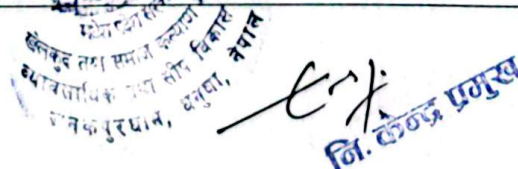 खेलकुद तथा समाज कल्याण
व्यावसायिक तथा सीप विकास
जनकपुरधाम, धनुषा, नेपाल
नि. केन्द्र प्रमुख